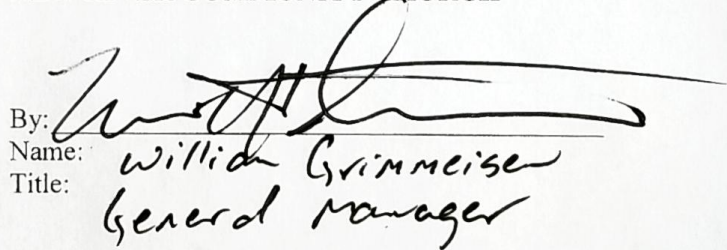 By:
Name: William Grimmeisen
Title: General Manager